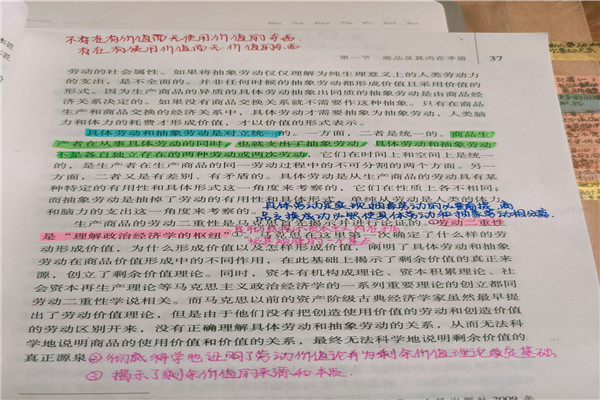 不存在有价值而无使用价值的东西
存在有使用价值而无价值的东西
第一节 商品及其内在矛盾 37
劳动的社会属性。如果将抽象劳动仅仅理解为纯生理意义上的人类劳动力
的支出，是不全面的。并非任何时候的抽象劳动都形成价值且采用价值的
形式。因为生产商品的异质的具体劳动抽象出同质的抽象劳动是由商品经
济关系决定的。如果没有商品交换关系就不需要作这种抽象。只有在商品
生产和商品交换的经济关系中，具体劳动才需要抽象为抽象劳动，人类脑
力和体力的耗费才形成价值，才以价值的形式表示。
具体劳动和抽象劳动是对立统一的。一方面，二者是统一的。商品生
产者在从事具体劳动的同时，也就支出了抽象劳动，具体劳动和抽象劳动
不是各自独立存在的两种劳动或两次劳动，它们在时间上和空间上是统一
的，是生产者在生产商品的同一劳动过程中的不可分割的两个方面。另一
方面，二者又是有差别、有矛盾的。具体劳动是从生产商品的劳动具有某
种特定的有用性和具体形式这一角度来考察的，它们在性质上各不相同；
而抽象劳动是抽掉了劳动的有用性和具体形式，单纯从劳动是人的体力
和脑力的支出这一角度来考察的。
具体劳动是实现抽象劳动的必要前提，商
品交换成功必然使具体劳动和抽象劳动相分离
生产商品的劳动二重性是马克思首先揭示并进行论证的。劳动二重性
是“理解政治经济学的枢纽”。马克思在这里第一次确定了什么样的劳
动形成价值，为什么形成价值以及怎样形成价值，阐明了具体劳动和抽象
劳动在商品价值形成中的不同作用，在此基础上揭示了剩余价值的真正来
源，创立了剩余价值理论。同时，资本有机构成理论、资本积累理论、社
会资本再生产理论等马克思主义政治经济学的一系列重要理论的创立都同
劳动二重性学说相关。而马克思以前的资产阶级古典经济学家虽然最早提
出了劳动价值理论，但是由于他们没有把创造使用价值的劳动和创造价值
的劳动区别开来，没有正确理解具体劳动和抽象劳动的关系，从而无法科
学地说明商品的使用价值和价值的关系，最终无法科学地说明剩余价值的
真正源泉
①彻底科学地证明了劳动价值论并为剩余价值理论奠定基础
② 揭示了剩余价值的来源和本质
2009 年